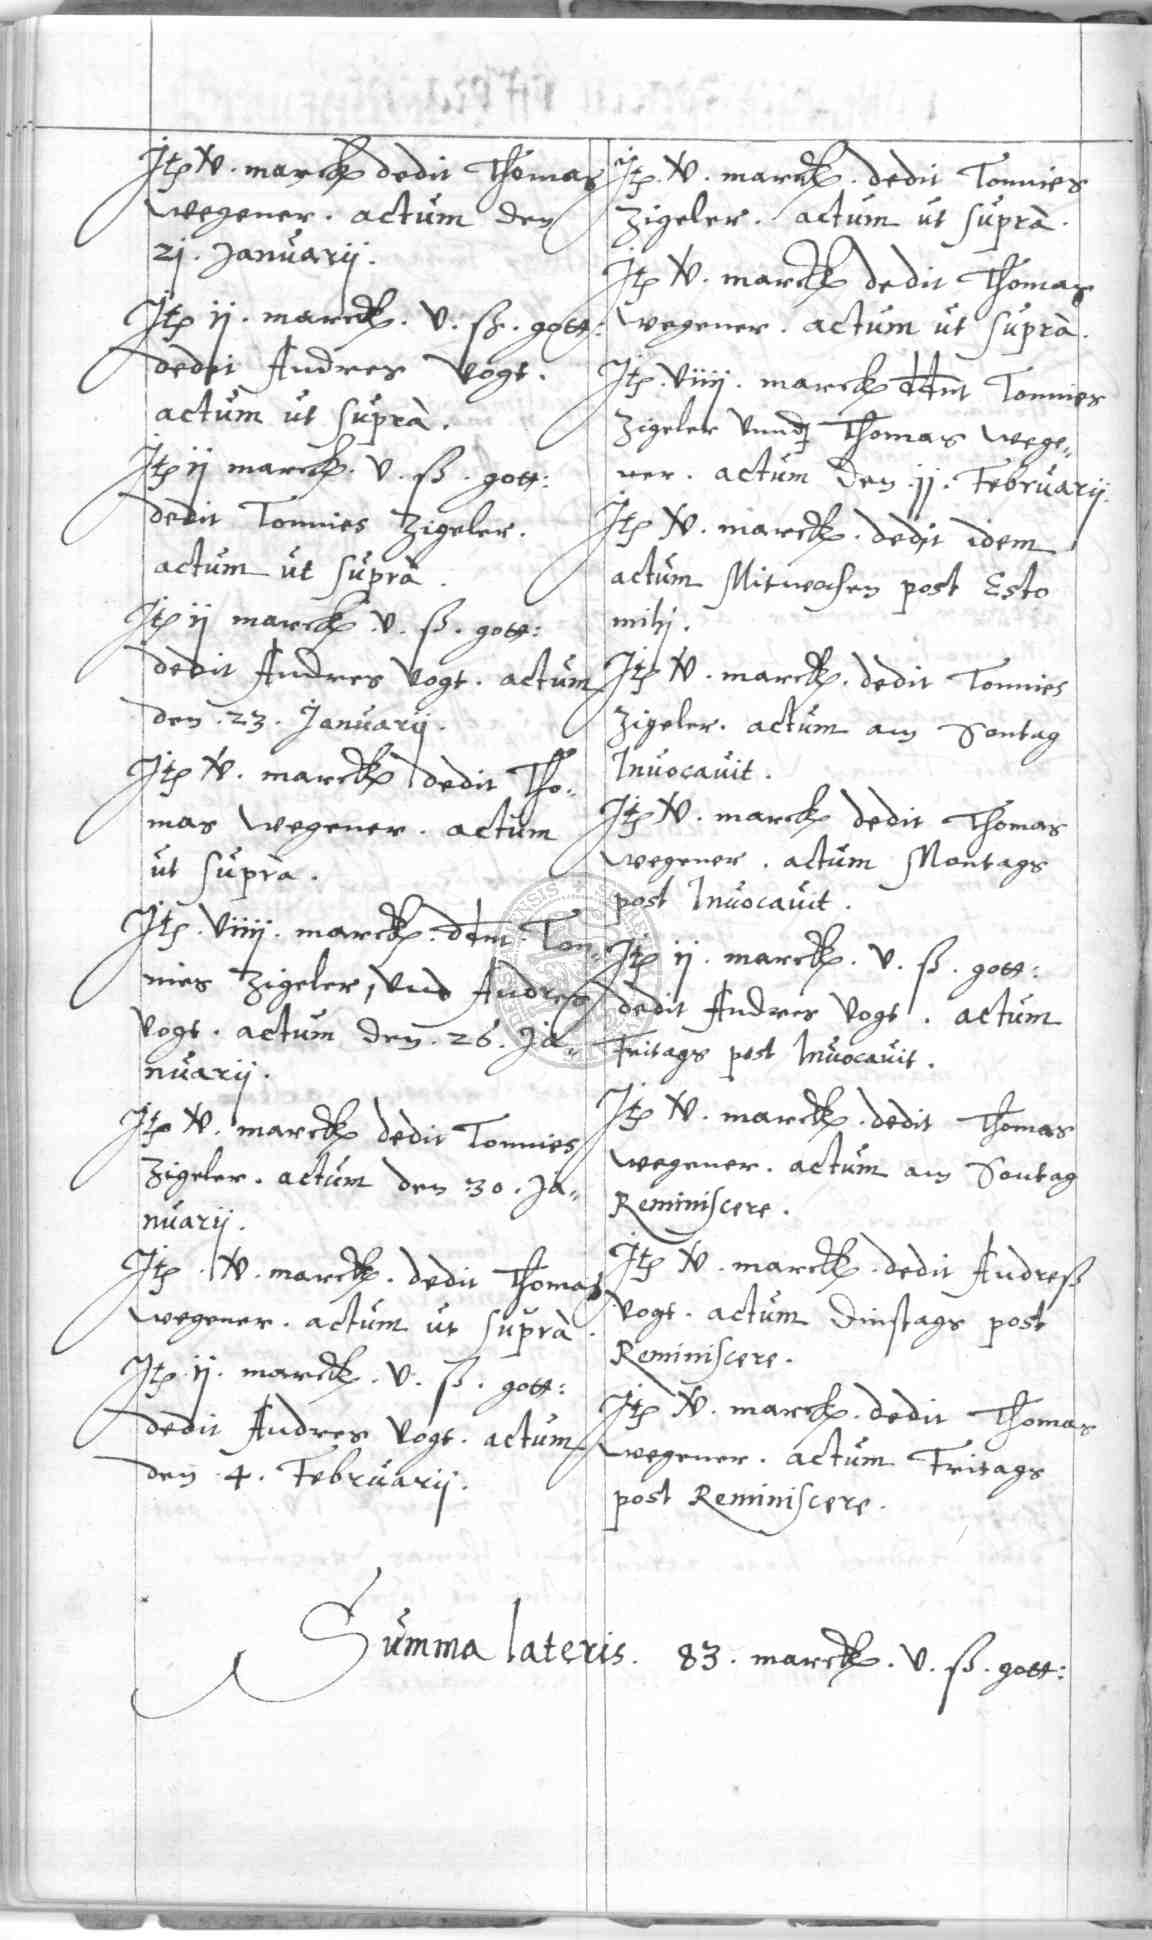 Itp V̷. marck dedit Thomas
Wegener. actum den
2j. Januarij.
Itp ij. marck. V. ß. gott:
dedit Andres Vogt.
actum ut suprà.
Itp ij marck. V. ß. gott:
dedit Tonnies Zigeler.
actum ut suprà.
Itp ij marck. V. ß. gott:
dedit Andres Vogt. actum
den. 23. Januarij.
Itp V̷. marck dedit Tho„
mas Wegener. actum
ut suprà.
Itp. Viiij. marck. ddnt. Ton„
nies Zigeler, Und Andress
Vogt. actum den. 26. Ja„
nuarij.
Itp V̷. marck dedit Tonnies
Zigeler. actum den 30. Ja„
nuarij.
Itp. V̷. marck. dedit Thomas
Wegener. actum ut suprà.
Itp. ij. marck. V. ß. gott:
dedit Andres Vogt. actum
den. 4. Februarij.
Itp. V̷. marck. dedit Tonnies
Zigeler. actum ut suprà.
Itp V̷. marck dedit Thomas
Wegener. actum ut suprà.
Itp. Viiij. marck ddnt Tonnies
Zigeler Unnd Thomas Wege„
ner. actum den. jj. Februarij.
Itp V̷. marck. dedit idem
actum Mitwochen post Esto
mihj.
Itp V̷. marck. dedit Tonnies
Zigeler. actum am Sontag
Inuocauit.
Itp V̷. marck dedit Thomas
Wegener. actum Montags
post Inuocauit.
Itp ij. marck. V. ß. gott:
dedit Andres Vogt. actum
Fritags post Inuocauit.
Itp V̷. marck. dedit Thomas
Wegener. actum am Sontag
Reminiscere.
Itp V̷. marck. dedit Andreß
Vogt. actum Dinstags post
Reminiscere.
Itp V̷. marck. dedit Thomas
Wegener. actum Fritags
post Reminiscere.
Summa lateris. 83. marck. V. ß. gott: